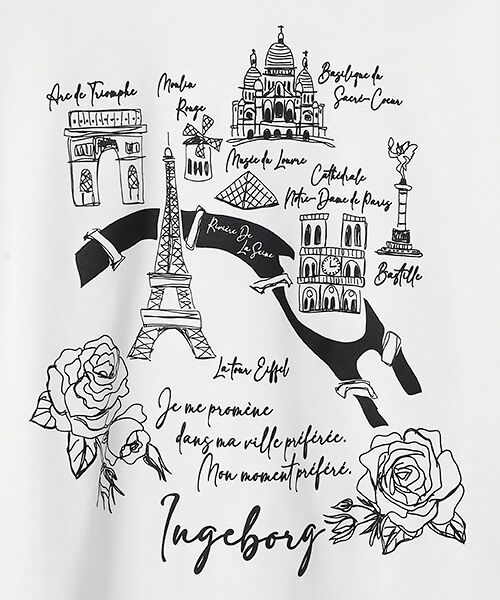 Arc de Triomphe
Moulin
Rouge
Basilique du
Sacré-Coeur
Musée du Louvre
Cathédrale
Notre-Dame de Paris
Bastille
Rivière De
La Seine
La tour Eiffel
Je me promène
dans ma ville préférée.
Mon moment préféré.
Ingeborg